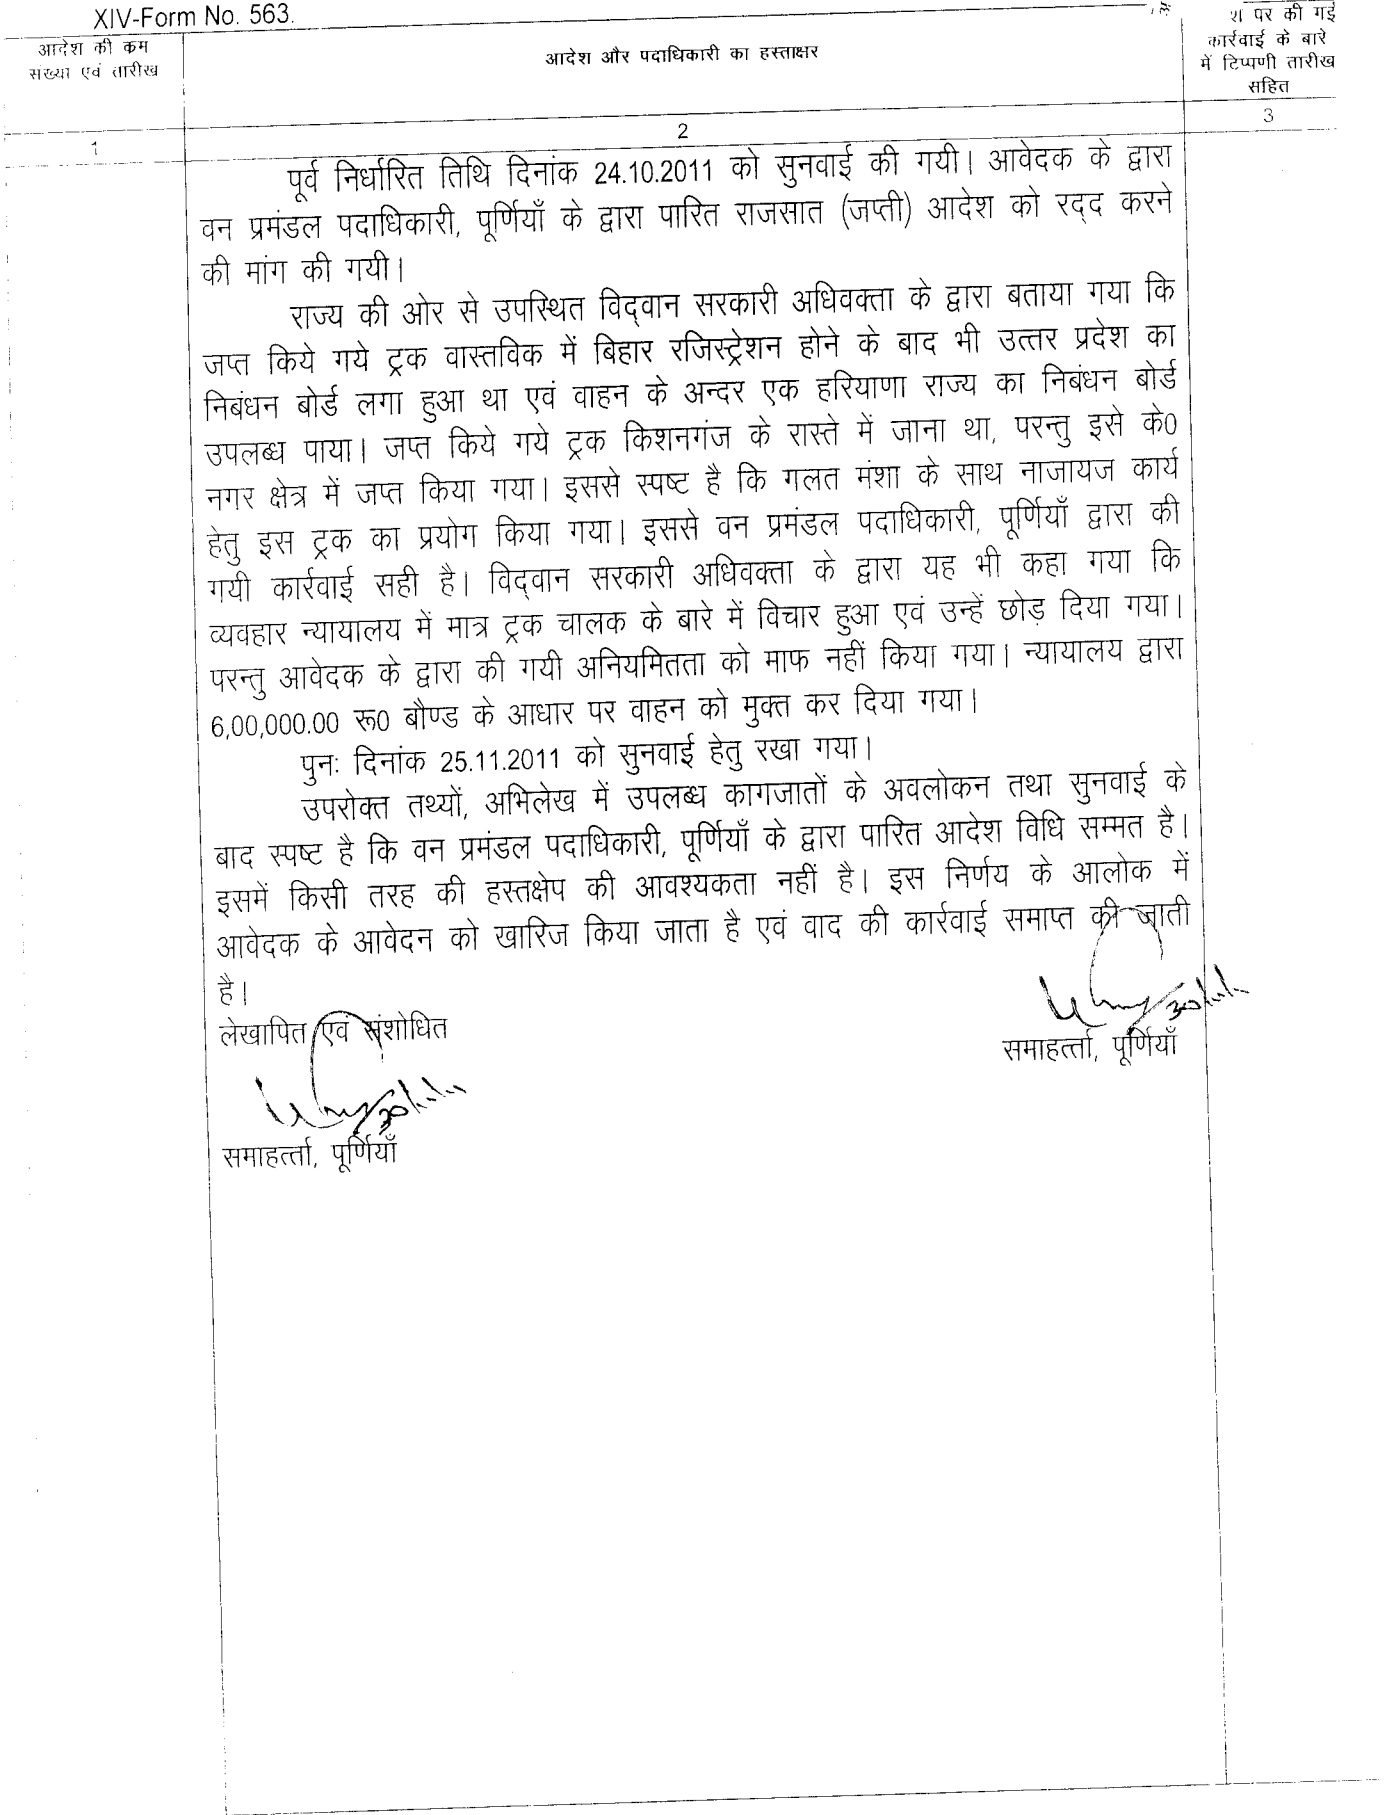 XIV-Form No. 563.
आदेश की कम
संख्या एवं तारीख
आदेश और पदाधिकारी का हस्ताक्षर
श पर की गई
कार्रवाई के बारे
में टिप्पणी तारीख
सहित
1
2
3
पूर्व निर्धारित तिथि दिनांक 24.10.2011 को सुनवाई की गयी। आवेदक के द्वारा
वन प्रमंडल पदाधिकारी, पूर्णियाँ के द्वारा पारित राजसात (जप्ती) आदेश को रद्द करने
की मांग की गयी।
राज्य की ओर से उपस्थित विद्वान सरकारी अधिवक्ता के द्वारा बताया गया कि
जप्त किये गये ट्रक वास्तविक में बिहार रजिस्ट्रेशन होने के बाद भी उत्तर प्रदेश का
निबंधन बोर्ड लगा हुआ था एवं वाहन के अन्दर एक हरियाणा राज्य का निबंधन बोर्ड
उपलब्ध पाया। जप्त किये गये ट्रक किशनगंज के रास्ते में जाना था, परन्तु इसे के0
नगर क्षेत्र में जप्त किया गया। इससे स्पष्ट है कि गलत मंशा के साथ नाजायज कार्य
हेतु इस ट्रक का प्रयोग किया गया। इससे वन प्रमंडल पदाधिकारी, पूर्णियाँ द्वारा की
गयी कार्रवाई सही है। विद्वान सरकारी अधिवक्ता के द्वारा यह भी कहा गया कि
व्यवहार न्यायालय में मात्र ट्रक चालक के बारे में विचार हुआ एवं उन्हें छोड़ दिया गया।
परन्तु आवेदक के द्वारा की गयी अनियमितता को माफ नहीं किया गया। न्यायालय द्वारा
6,00,000.00 रू0 बौण्ड के आधार पर वाहन को मुक्त कर दिया गया।
पुनः दिनांक 25.11.2011 को सुनवाई हेतु रखा गया।
उपरोक्त तथ्यों, अभिलेख में उपलब्ध कागजातों के अवलोकन तथा सुनवाई के
बाद स्पष्ट है कि वन प्रमंडल पदाधिकारी, पूर्णियाँ के द्वारा पारित आदेश विधि सम्मत है।
इसमें किसी तरह की हस्तक्षेप की आवश्यकता नहीं है। इस निर्णय के आलोक में
आवेदक के आवेदन को खारिज किया जाता है एवं वाद की कार्रवाई समाप्त की जाती
है।
लेखापित एवं संशोधित
समाहर्त्ता, पूर्णियाँ
समाहर्त्ता, पूर्णियाँ